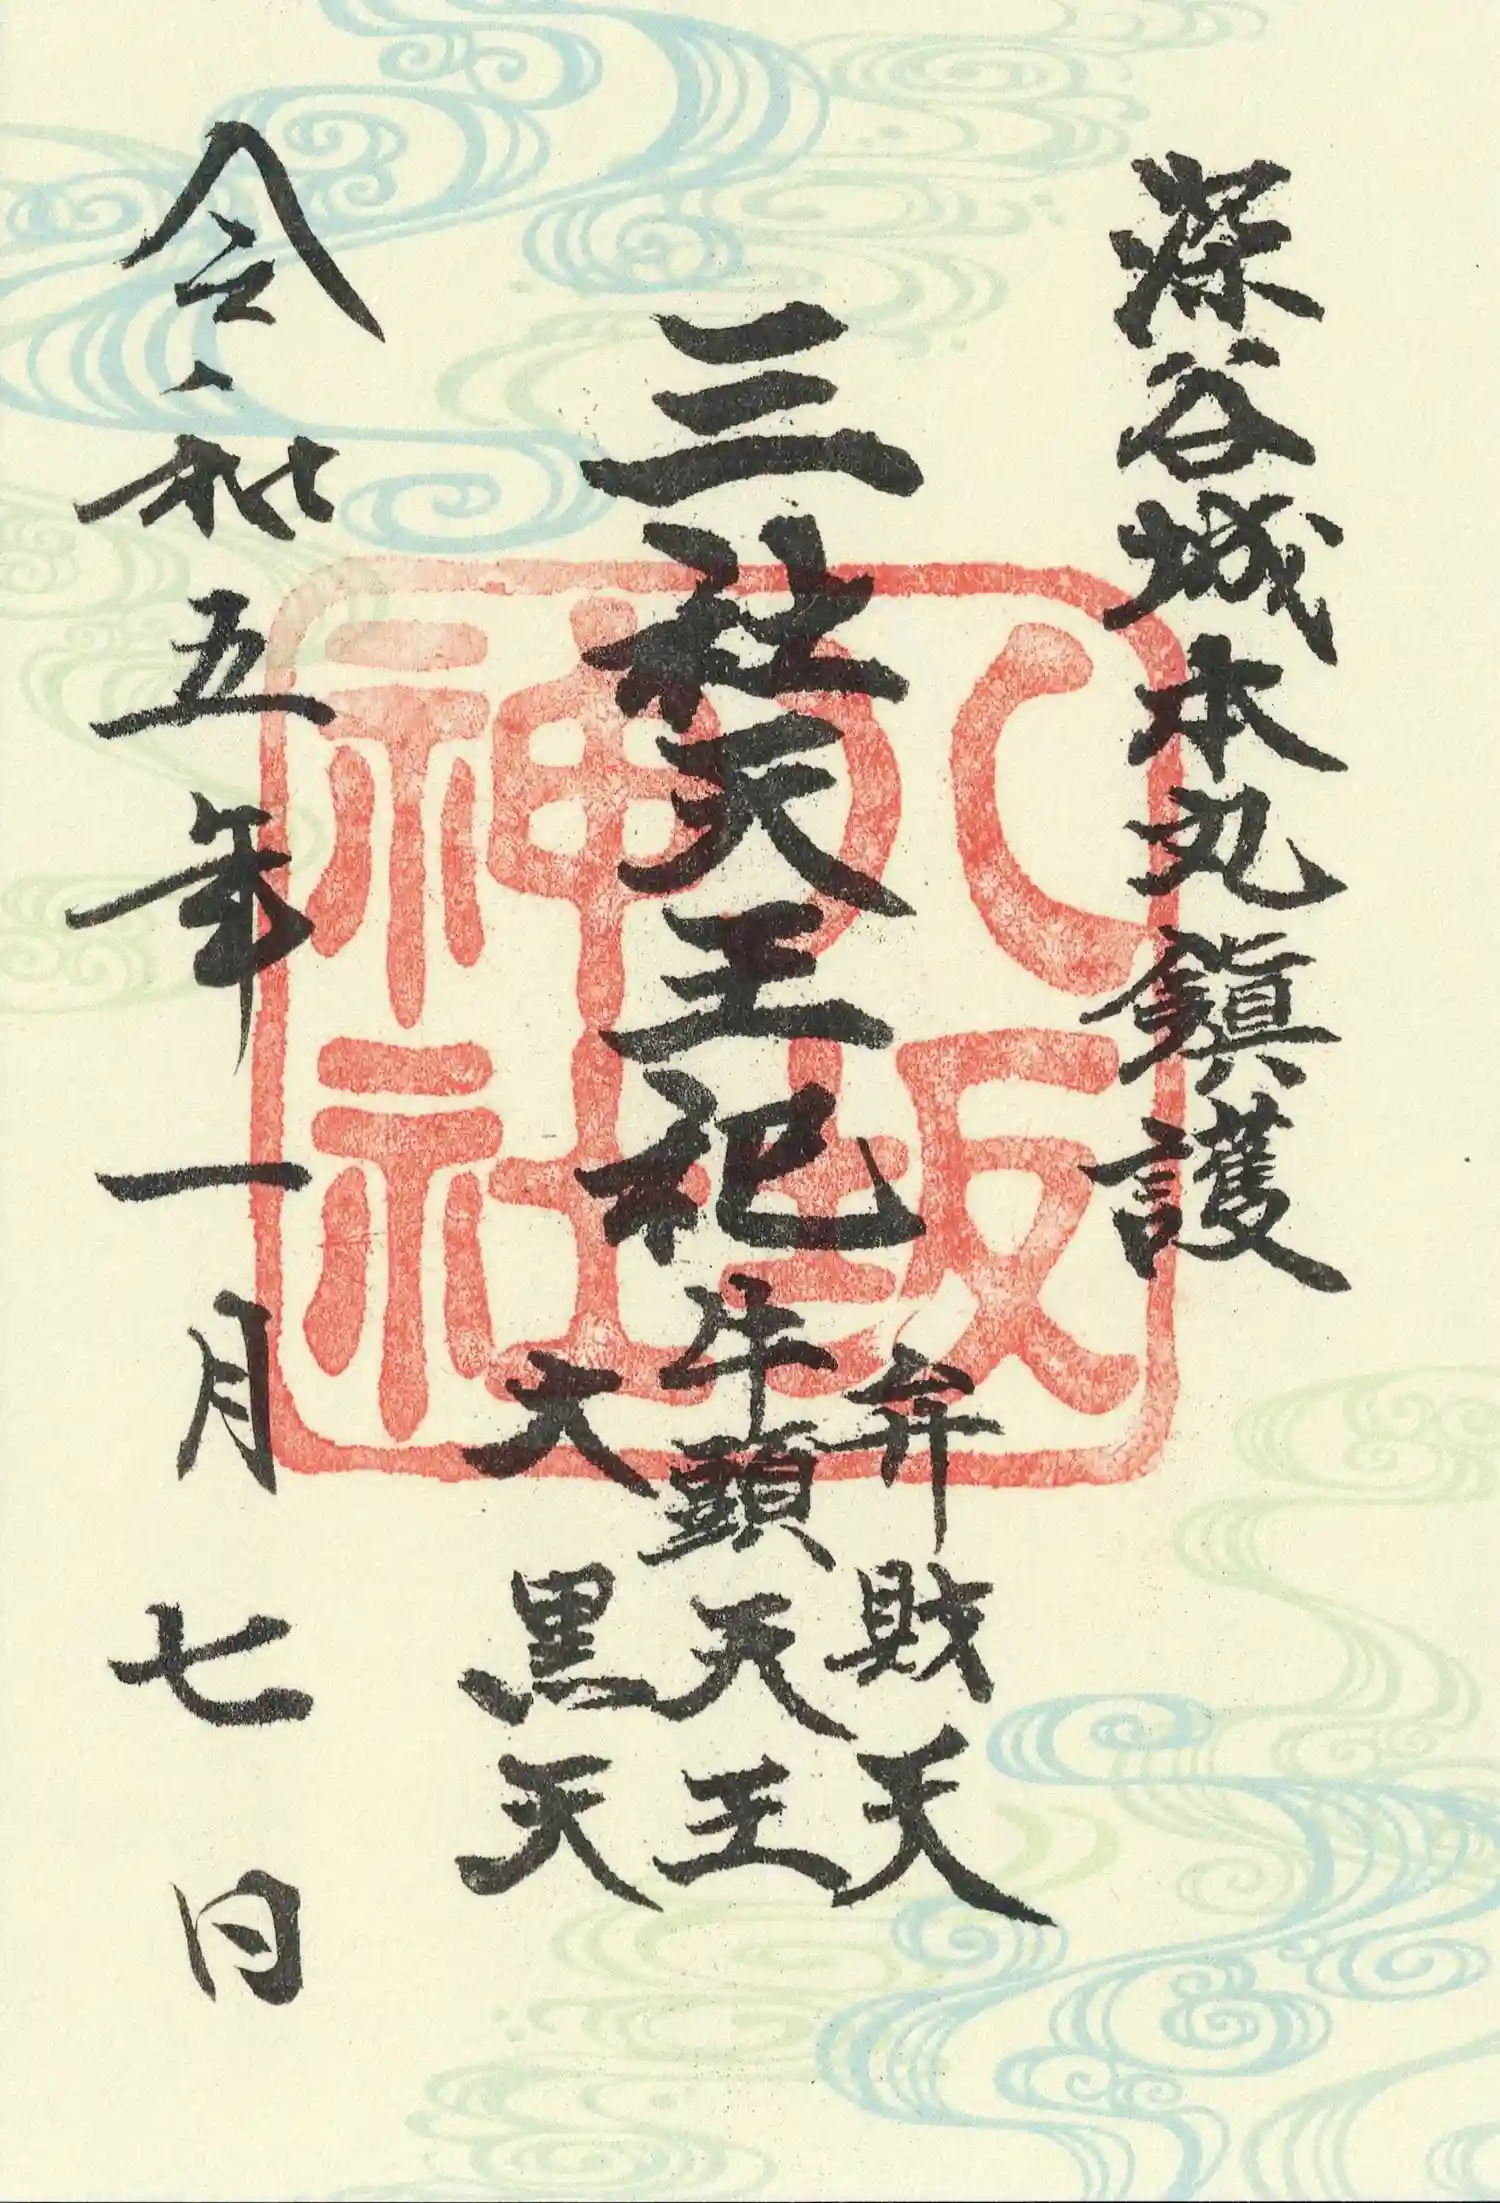 深谷城本丸鎮護
三社天王祀
弁財天
牛頭天王
大黒天
令和五年一月七日
八坂
神社